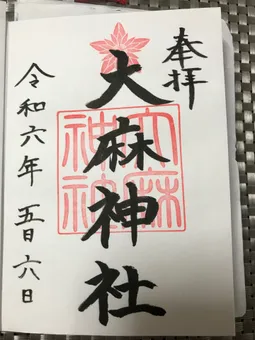 奉拝
大麻神社
大麻神社
令和六年 五月六日